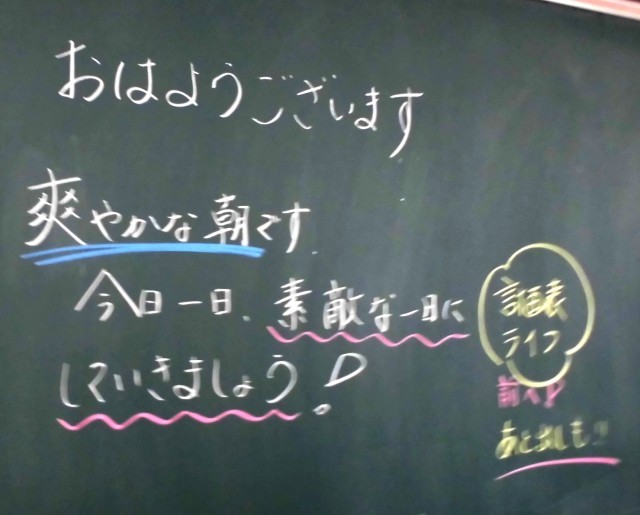 おはようございます
爽やかな朝です.
今日一日、素敵な一日に
していきましょう!
ライフ
前へ!
あと出しも!!